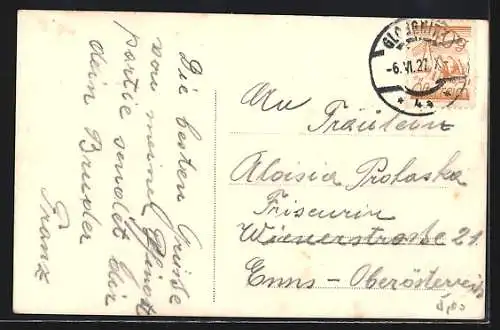 Die besten Grüsse
von meiner
partie sendet dir
dein Bruder
Franz
GLOGGNITZ
-6.VI.27.X
* 4a *
An
Fräulein
Aloisia Prohaska
Friseurin
Wienerstrasse 21.
Enns - Oberösterreich